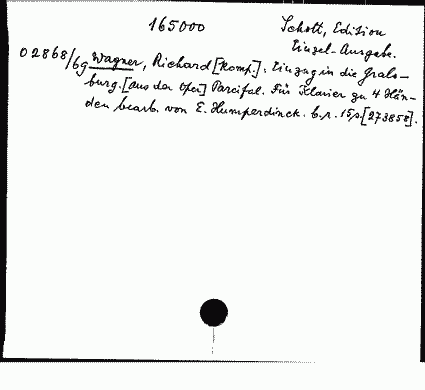 165000
Schott, Edition
Einzel-Ausgabe.
02868/69 Wagner, Richard [Komp.]. Einzug in die Grals-
burg. [aus der Oper] Parsifal. Für Klavier zu 4 Hän-
den bearb. von E. Humperdinck. 15 S. [27385].